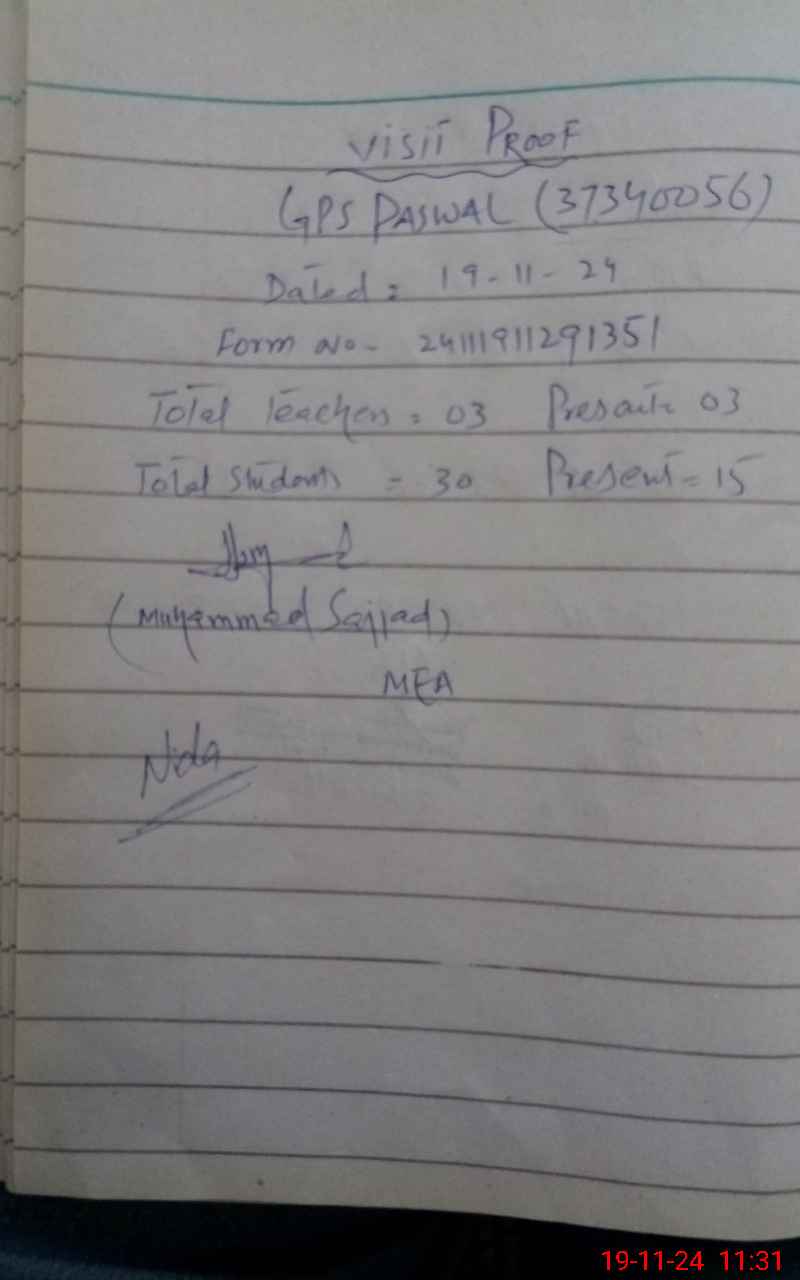 Visit Proof
GPS PASWAL (37340056)
Dated: 19-11-24
Form No- 24111911291351
Total Teachers = 03 Present= 03
Total Students = 30 Present= 15
(Muhammad Sajjad)
MEA
Nida
19-11-24 11:31